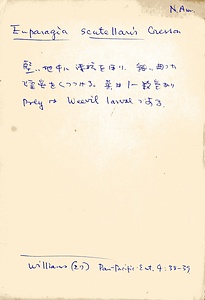 N. Am.
Euparagia scutellaris Cresson
堅い地中に深坑をほり、細い曲った
煙突をくっつける。巣は1〜数室あり
preyは Weevil larvae である。
Williams (27) Pan-Pacific Ent. 4: 38-39